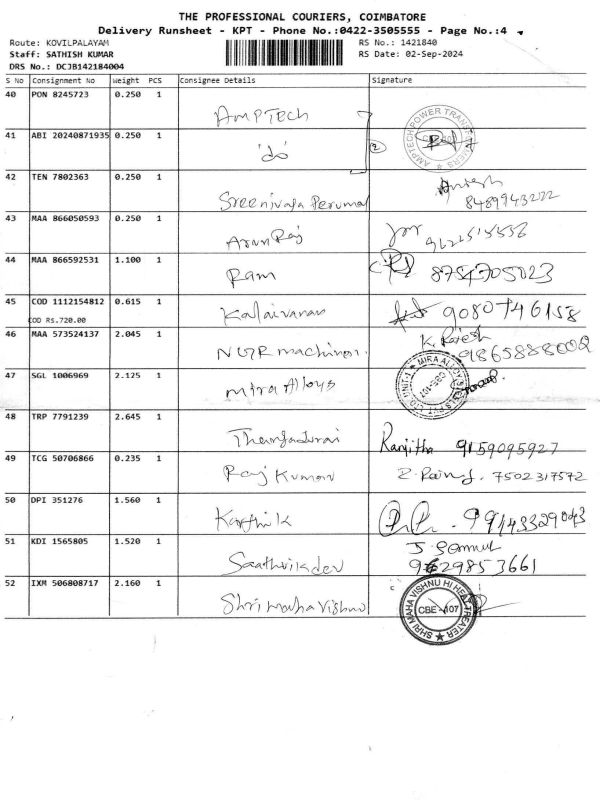 THE PROFESSIONAL COURIERS, COIMBATORE
Delivery Runsheet - KPT - Phone No.:0422-3505555 - Page No.:4
Route: KOVILPALAYAM RS No.: 1421840
Staff: SATHISH KUMAR RS Date: 02-Sep-2024
DRS No.: DCJB142184004
S No Consignment No Weight PCS Consignee Details Signature
40 PON 8245723 0.250 1
AMPTech
AMPTECH POWER TRANSFORMERS
41 ABI 20240871935 0.250 1
'do' (2)
42 TEN 7802363 0.250 1
Sreenivasa Perumal 8489943222
43 MAA 866050593 0.250 1
Arun Raj
44 MAA 866592531 1.100 1
Ram
45 COD 1112154812 0.615 1
Kalaivanan 9080746158
COD Rs.720.00
46 MAA 573524137 2.045 1 K. Rajesh
NGR machiner.
47 SGL 1006969 2.125 1
MIRA ALLOY
Mira Alloys
48 TRP 7791239 2.645 1
Thangadurai Ranjitha 9159095927
49 TCG 50706866 0.235 1
Raj Kumar 7502317572
50 DPI 351276 1.560 1
Karthik
51 KDI 1565805 1.520 1
Saathvikdev 9629853661
52 IXM 506808717 2.160 1
Shri maha Vishnu
SHRI MAHA VISHNU HI HEAT TREATER
CBE-107